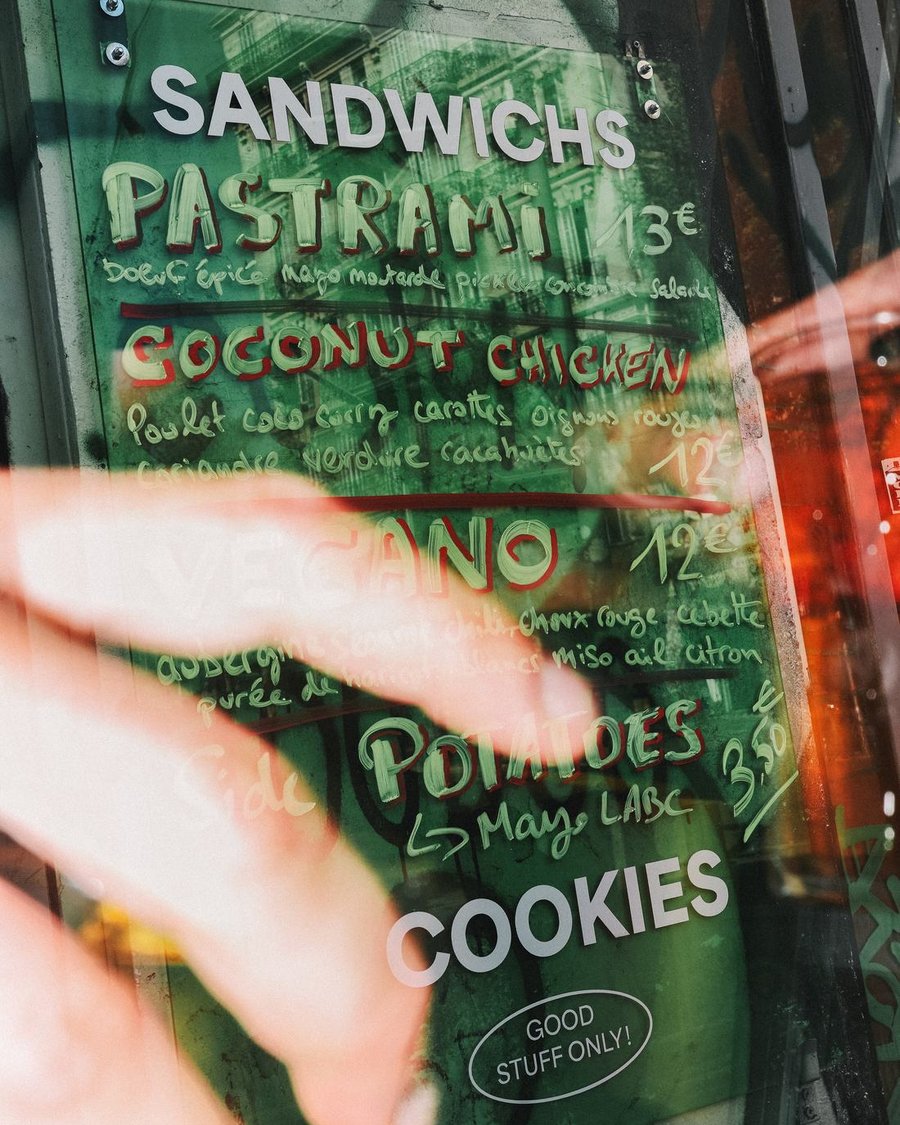 SANDWICHS
PASTRAMi 13€
boeuf épicé mayo moutarde pickles concombre salade
COCONUT CHICKEN
Poulet coco curry carottes oignons rouges
coriandre verdure cacahuètes 12€
VEGANO 12€
aubergine choux rouge cebette
purée de miso ail citron
Side POTATOES 3,50€
↳ Mayo LABC
COOKIES
GOOD
STUFF ONLY!